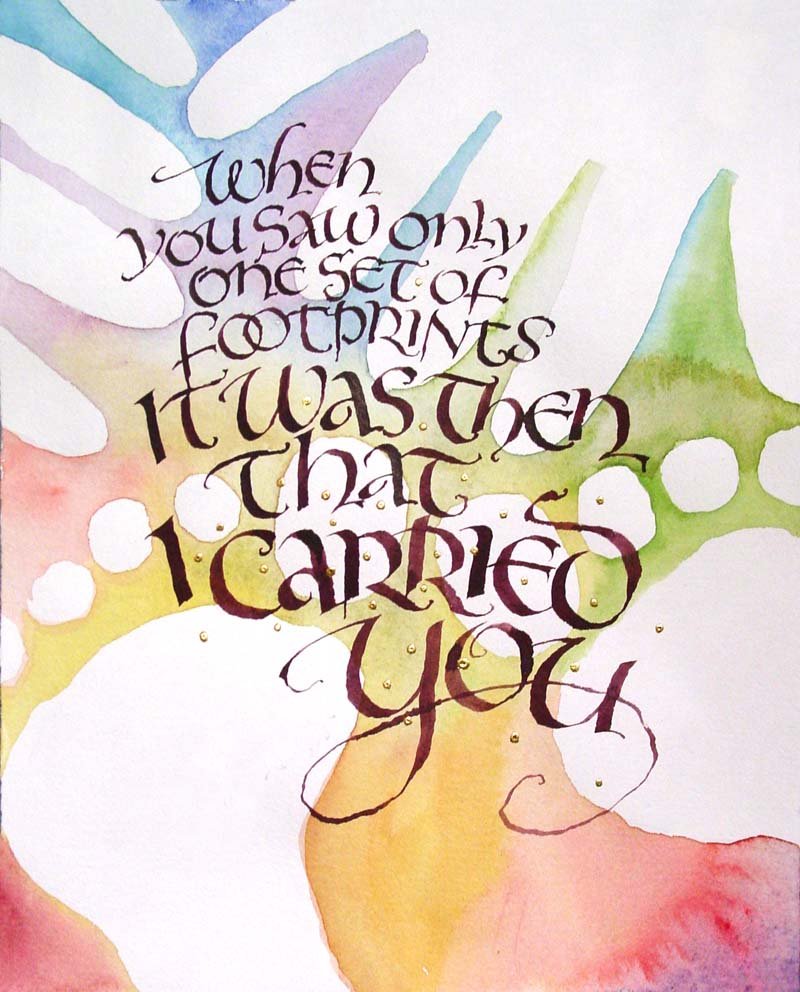 when
you saw only
one set of
footprints
It was then
that
I carried
you